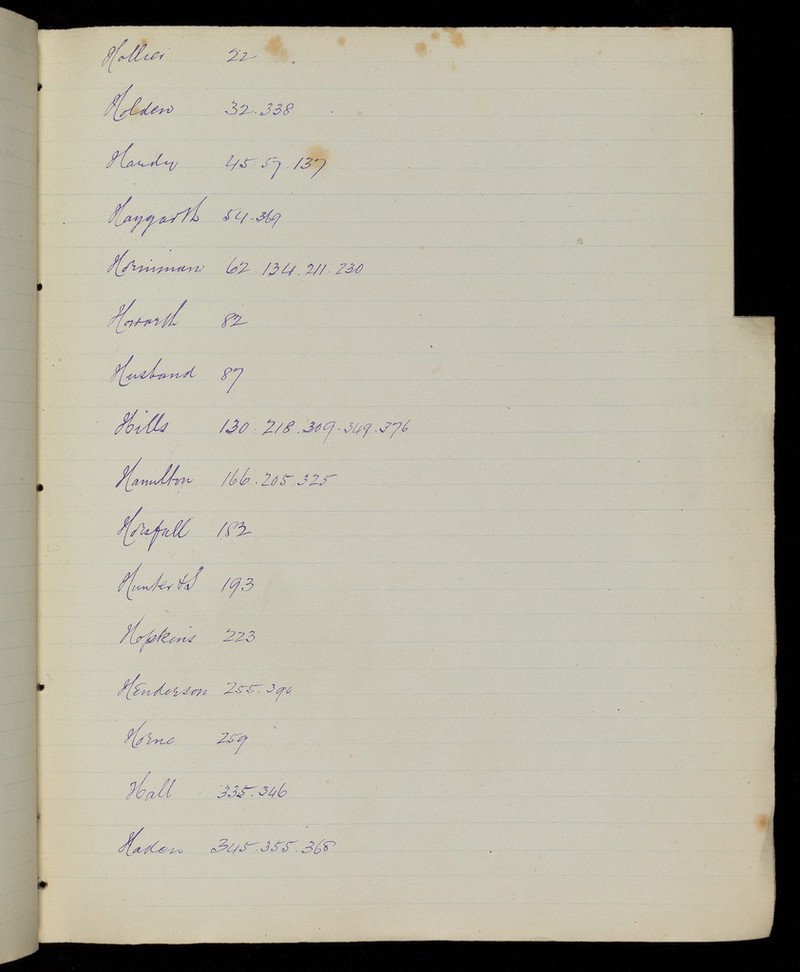 Hollies 22
Holden 32. 338
Handy 45. 57. 137
Haygarth 54. 369
Horniman 62. 134. 211. 230
Howarth 82
Husband 87
Hills 130. 218. 309. 349. 376
Hamilton 166. 205. 325
Horsfall 182
Hunter &S 193
Hopkins 223
Henderson 255. 390
Horne 259
Hall 335. 346
Haden 345. 355. 368